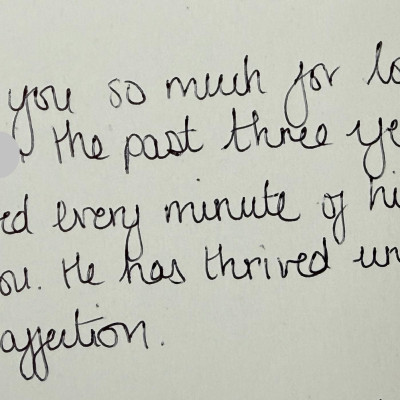 you so much for lo
, the past three ye
ed every minute of hi
ou. He has thrived un
affection.